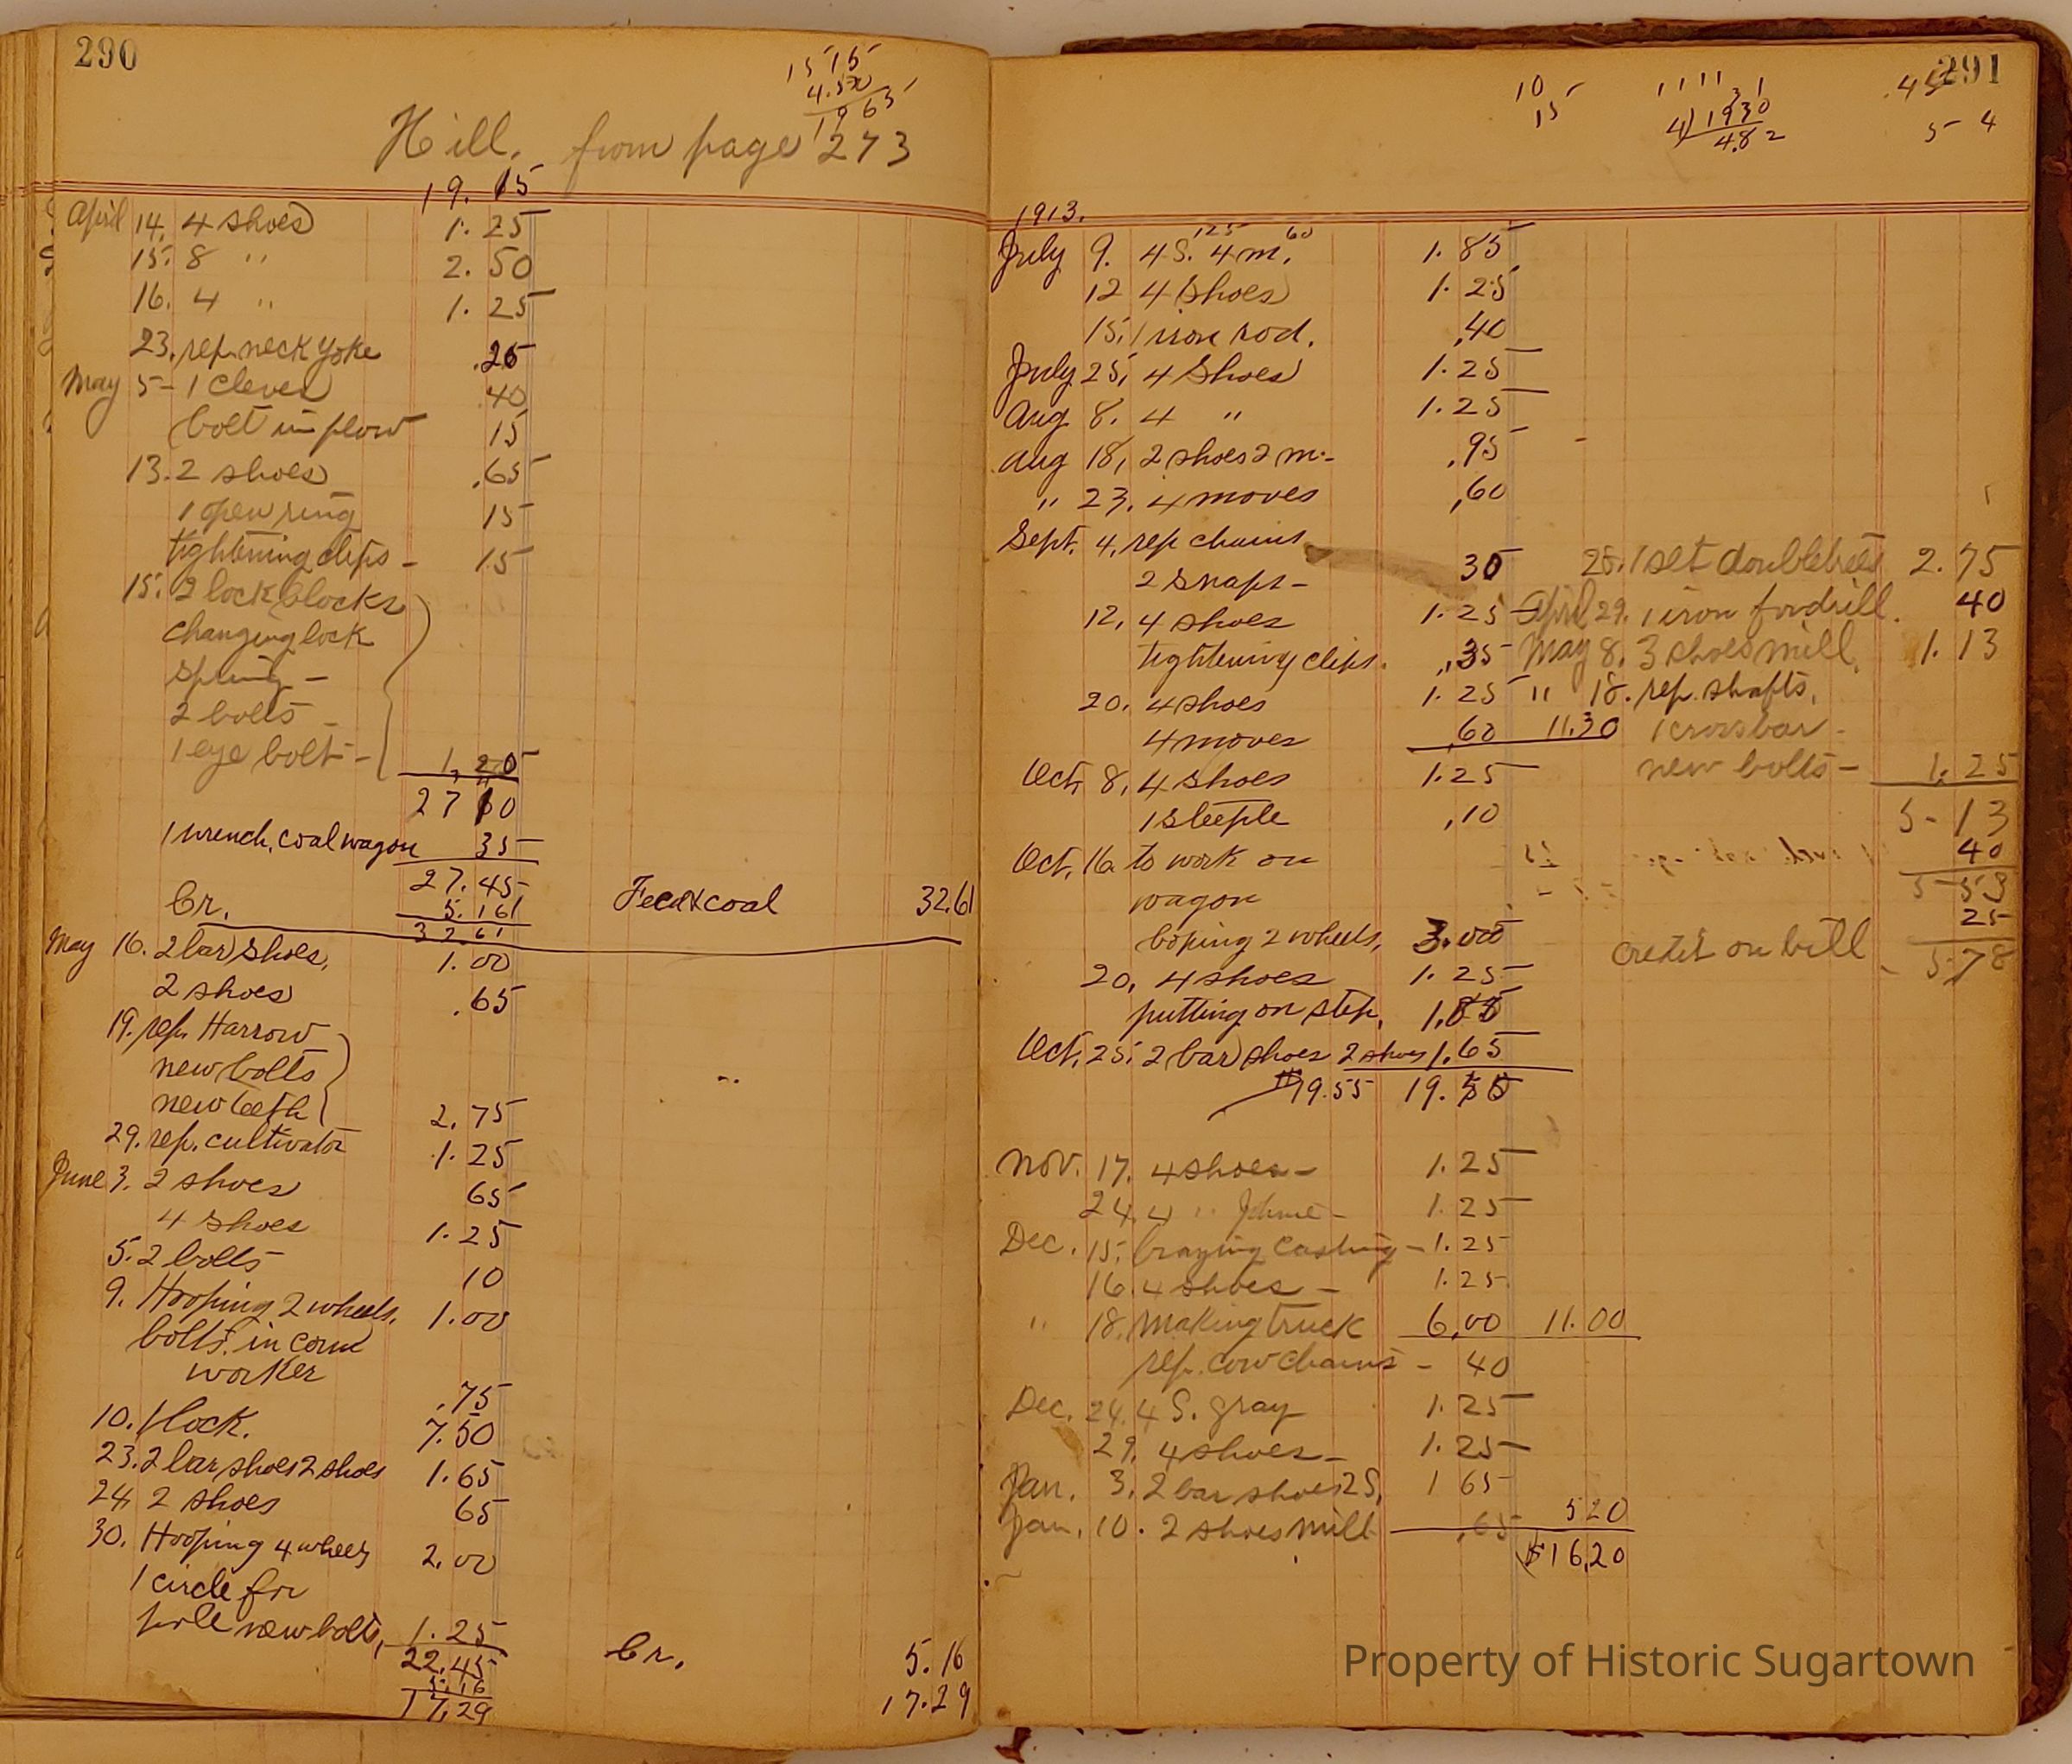 290
15 15
4.50
19 65
Hill. from page 273
19. 15
April 14. 4 shoes 1.25
15. 8 " 2.50
16. 4 " 1.25
23. rep. neck yoke .25
May 5 - 1 clever 40
bolt in plow 15
13. 2 shoes .65
1 open ring 15
tightening clips - 15
15. 2 lock blocks
changing lock
spring -
2 bolts -
1 eye bolt - 1.20
27 10
1 wrench, coal wagon 35
27.45
Cr. 5.16 Feed & coal 32.61
32.61
May 16. 2 bar shoes, 1.00
2 shoes .65
19. rep. Harrow
new bolts
new teeth 2.75
29. rep. cultivator 1.25
June 3. 2 shoes 65
4 shoes 1.25
5. 2 bolts 10
9. Hooping 2 wheels, 1.00
bolts in corn
worker .75
10. 1 lock. 7.50
23. 2 bar shoes 2 shoes 1.65
24, 2 shoes 65
30. Hooping 4 wheels 2.00
1 circle for
pole new bolts, 1.25
22.45
5.16 Cr. 5.16
17.29 17.29
291
10
15
4) 1930
4.82
5 4
1913.
125 60
July 9. 4 S. 4 m. 1.85
12 4 shoes 1.25
15. 1 iron rod. .40
July 25, 4 Shoes 1.25
Aug 8. 4 " 1.25
Aug 18, 2 shoes 2 m. - .95
" 23. 4 moves .60
Sept. 4. rep chains
2 snaps - 30
12, 4 shoes 1.25
tightening clips. .35
20. 4 shoes 1.25
4 moves 60 11.30
Oct, 8, 4 shoes 1.25
1 steeple .10
Oct, 16. to work on
wagon
hoping 2 wheels, 3.00
20, 4 shoes 1.25
putting on step,
Oct, 25. 2 bar shoes 2 shoes 1.65
19.55 19.55
Nov. 17. 4 shoes - 1.25
24. 4 " 1.25
Dec. 15. brazing casting - 1.25
16. 4 shoes - 1.25
" 18. Making truck 6.00 11.00
rep. cow chains - 40
Dec. 24. 4 S. gray 1.25
29. 4 shoes - 1.25
Jan. 3. 2 bar shoes 2 S, 1 65
Jan. 10. 2 shoes mill .65 5 20
$16.20
25. 1 set doubletrees 2.75
April 29. 1 iron for drill. 40
May 8. 3 shoes mill, 1.13
" 18. rep. shafts,
1 crossbar -
new bolts - 1.25
5 - 13
40
5 - 53
25
credit on bill - 5.78
Property of Historic Sugartown